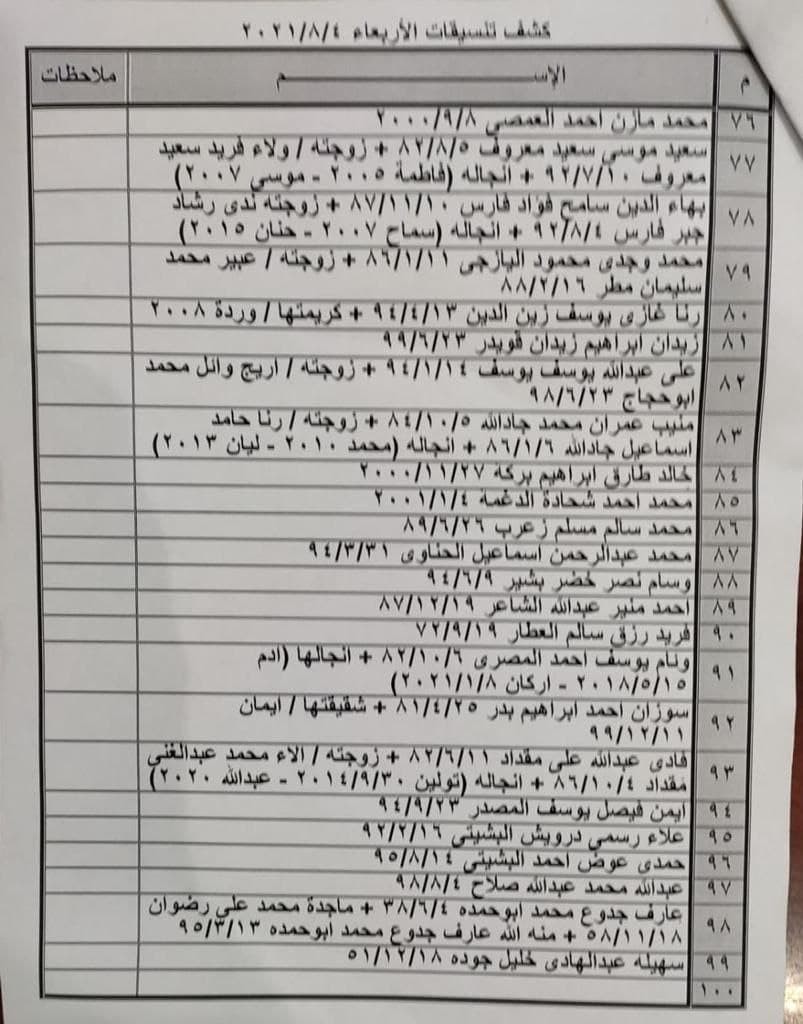 كشف تنسيقات الأربعاء ٢٠٢١/٨/٤
م الإســـــــم ملاحظات
٧٦ محمد مازن احمد العمصي ٢٠٠٠/٩/٨
٧٧ سعيد موسى سعيد معروف ٨٢/٨/٥ + زوجته / ولاء فريد سعيد
معروف ٩٢/٧/١٠ + انجاله (فاطمة ٢٠٠٥ - موسى ٢٠٠٧)
٧٨ بهاء الدين سامح فؤاد فارس ٨٧/١١/١٠ + زوجته ندى رشاد
جبر فارس ٩٢/٨/٤ + انجاله (سماح ٢٠٠٧ - حنان ٢٠١٥)
٧٩ محمد وجدى محمود اليازجى ٨٦/١/١١ + زوجته / عبير محمد
سليمان مطر ٨٨/٢/١٦
٨٠ رنا غازى يوسف زين الدين ٩٤/٤/١٣ + كريمتها / وردة ٢٠٠٨
٨١ زيدان ابراهيم زيدان قويدر ٩٩/٦/٢٣
٨٢ على عبدالله يوسف يوسف ٩٤/١/١٤ + زوجته / اريج وائل محمد
ابوحجاج ٩٨/٦/٢٣
٨٣ منيب عمران محمد جادالله ٨٤/١٠/٥ + زوجته / رنا حامد
اسماعيل جادالله ٨٦/١/٦ + انجاله (محمد ٢٠١٠ - ليان ٢٠١٣)
٨٤ خالد طارق ابراهيم بركة ٢٠٠٠/١١/٢٧
٨٥ محمد احمد شحادة الدغمة ٢٠٠١/١/٤
٨٦ محمد سالم مسلم زعرب ٨٩/٦/٢٦
٨٧ محمد عبدالرحمن اسماعيل الحناوى ٩٤/٣/٣١
٨٨ وسام نصر خضر بشير ٩٤/٦/٩
٨٩ احمد منير عبدالله الشاعر ٨٧/١٢/١٩
٩٠ فريد رزق سالم العطار ٧٢/٩/١٩
٩١ ونام يوسف احمد المصرى ٨٢/١٠/٦ + انجالها (ادم
٢٠١٨/٥/١٥ - اركان ٢٠٢١/١/٨)
٩٢ سوزان احمد ابراهيم بدر ٨١/٤/٢٥ + شقيقتها / ايمان
٩٩/١٢/١١
٩٣ فادى عبدالله على مقداد ٨٢/٦/١١ + زوجته / الاء محمد عبدالغني
مقداد ٨٦/١٠/٤ + انجاله (تولين ٢٠١٤/٩/٣٠ - عبدالله ٢٠٢٠)
٩٤ ايمن فيصل يوسف المصدر ٩٤/٩/٢٣
٩٥ علاء رسمي درويش البشيتى ٩٢/٢/١٦
٩٦ حمدى عوض احمد البشيتى ٩٥/٨/١٤
٩٧ عبدالله محمد عبدالله صلاح ٩٨/٨/٤
٩٨ عارف جدوع محمد ابوحمده ٣٨/٦/٤ + ماجدة محمد على رضوان
٥٨/١١/١٨ + منه الله عارف جدوع محمد ابوحمده ٩٥/٣/١٣
٩٩ سهيله عبدالهادى خليل جوده ٥١/١٢/١٨
١٠٠